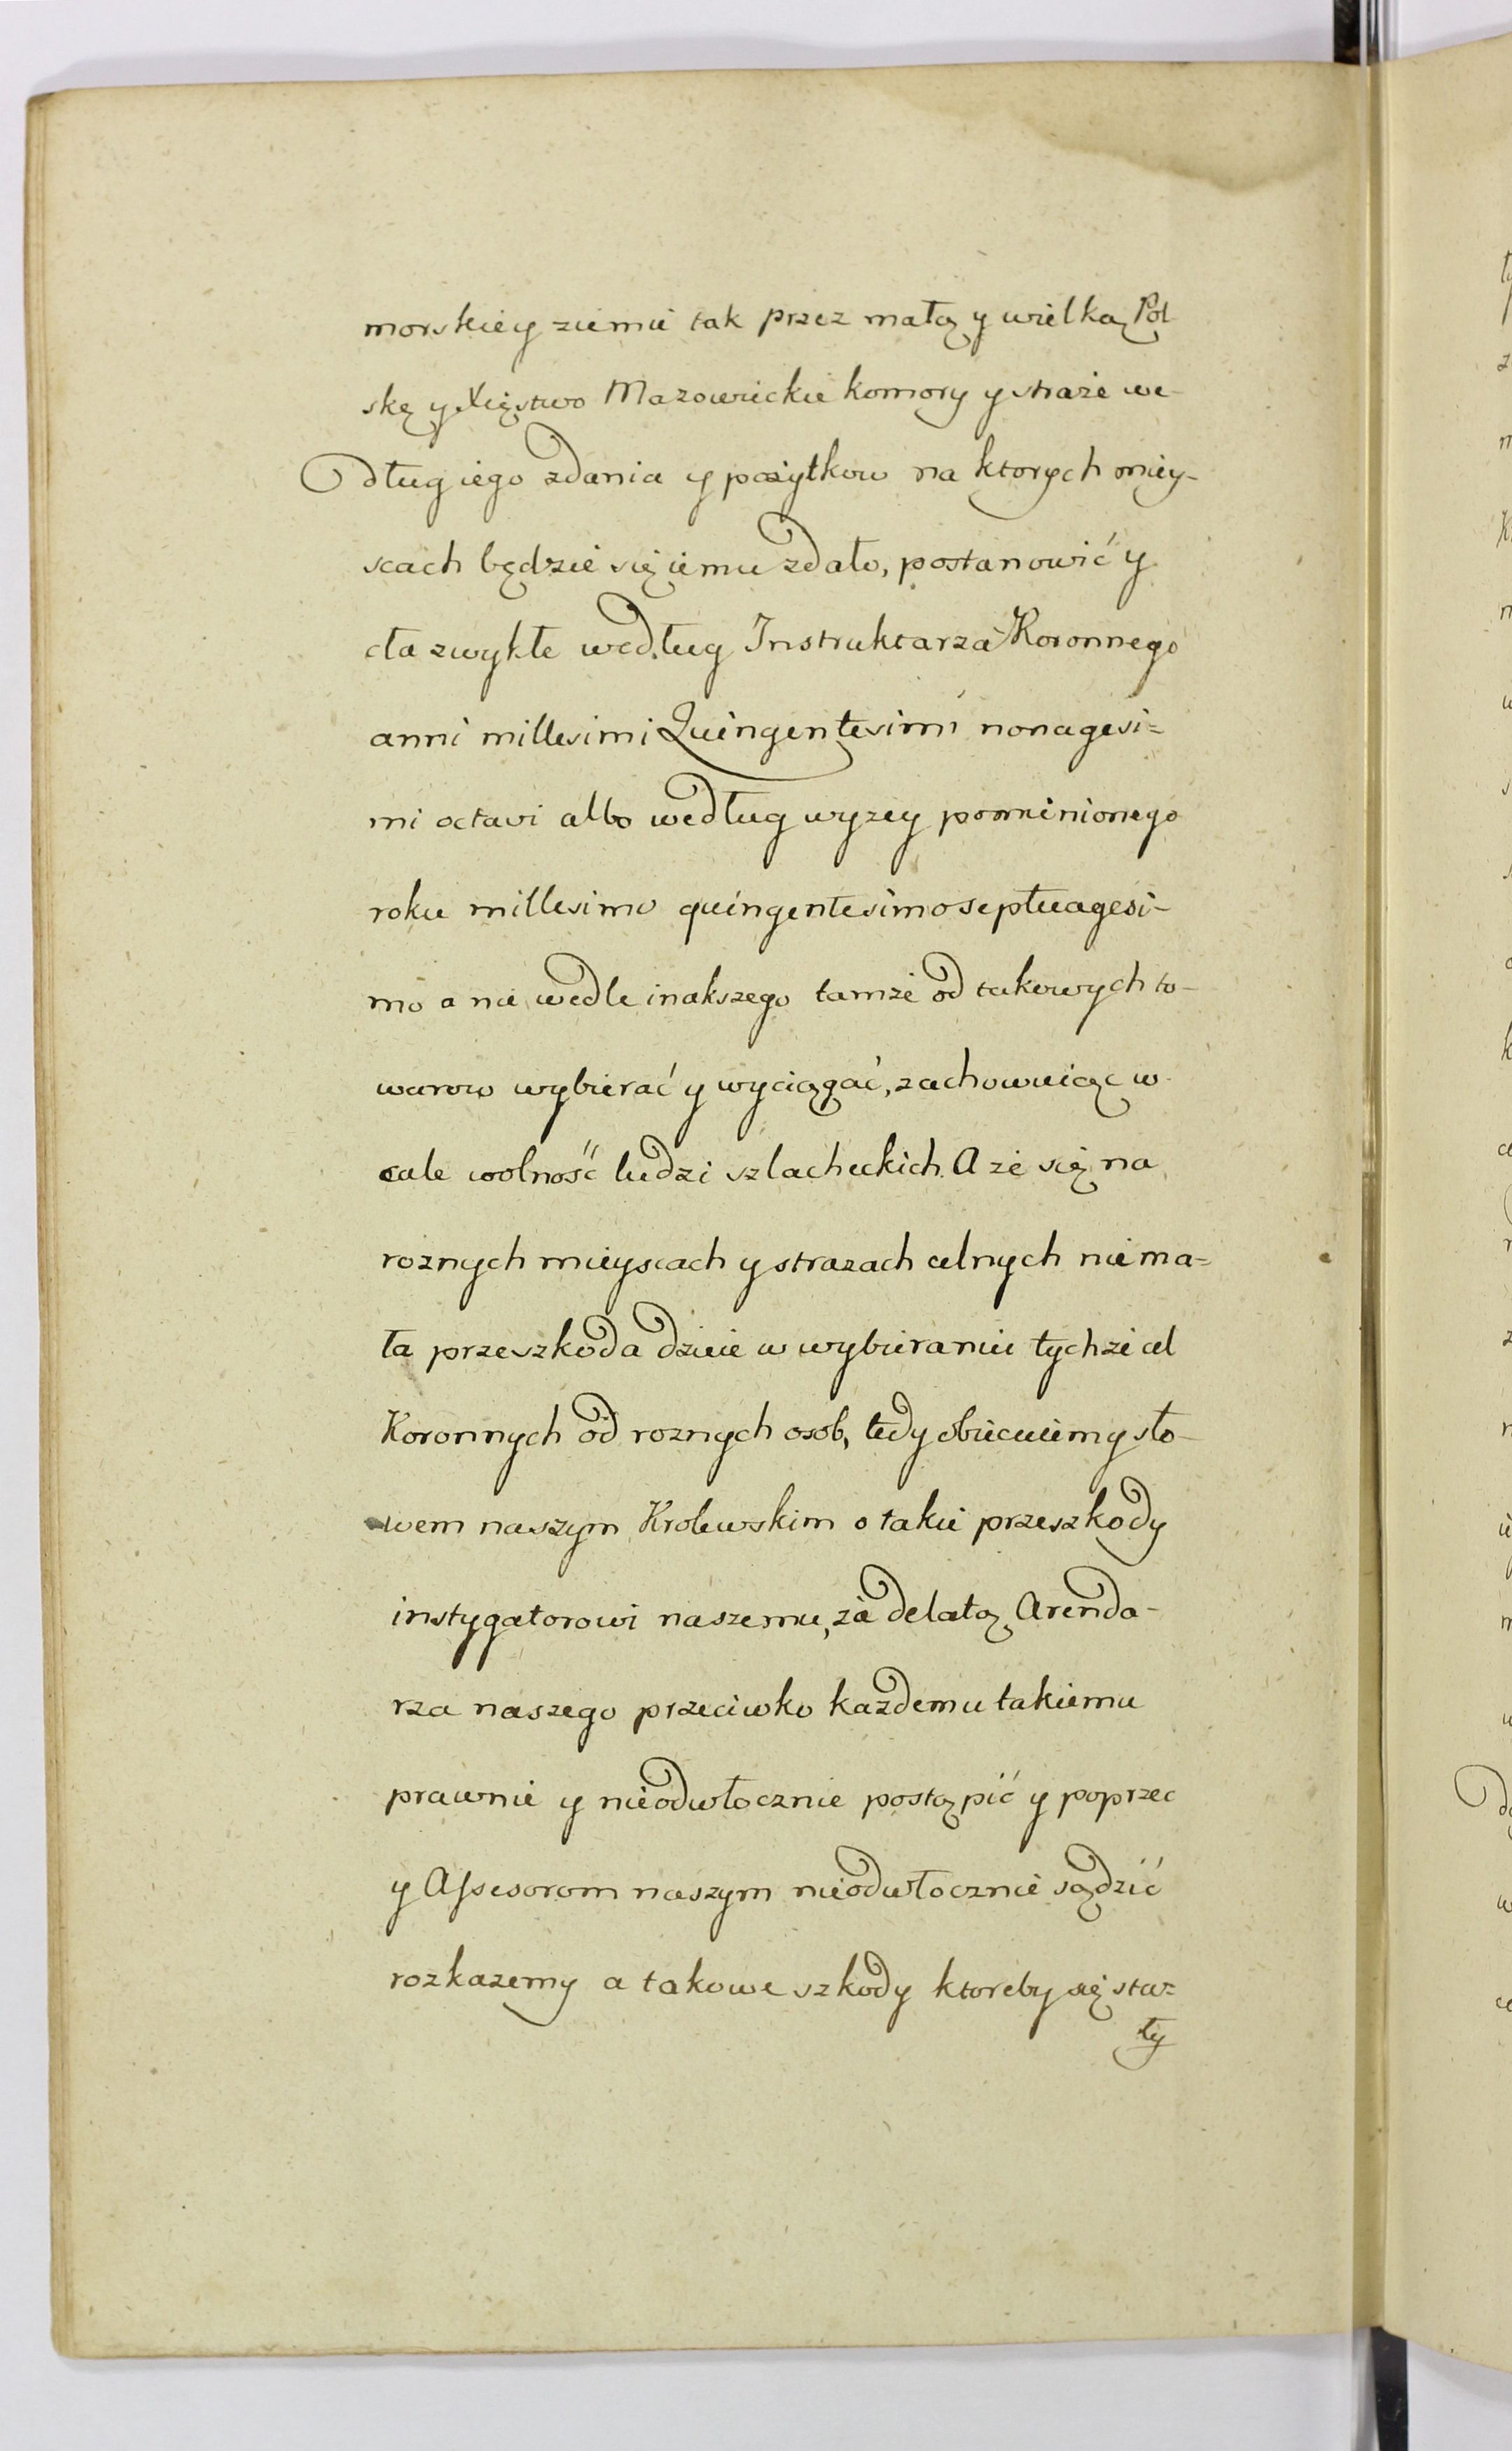 morskiey ziemie tak przez małą y wielką Pol
skę y Xięstwo Mazowieckie komory y straże we-
dług iego zdania y pożytkow na ktorych miey-
scach będzie się iemu zdało, postanowić y
cła zwykłe według Instruktarza Koronnego
anni millesimi Quingentesimi nonagesi=
mi octavi albo według wyzey pomienionego
roku millesimo quingentesimo septuagesi-
mo a nie wedle inakszego tamże od takowych to-
warow wybierać y wyciągać, zachowuiąc w
cale wolność ludzi szlacheckich. A że się na
roznych mieyscach y strazach celnych nie ma=
ła przeszkoda dzieie w wybieraniu tychże cel
Koronnych od roznych osob, tedy obiecuiemy sło-
wem naszym Krolewskim o takie przeszkody
instygatorowi naszemu, za delatą Arenda-
rza naszego przeciwko każdemu takiemu
prawnie y nieodwłocznie postąpić y poprzec
y Assesorom naszym nieodwłocznie sądzić
rozkazemy a takowe szkody ktoreby się sta=
ły